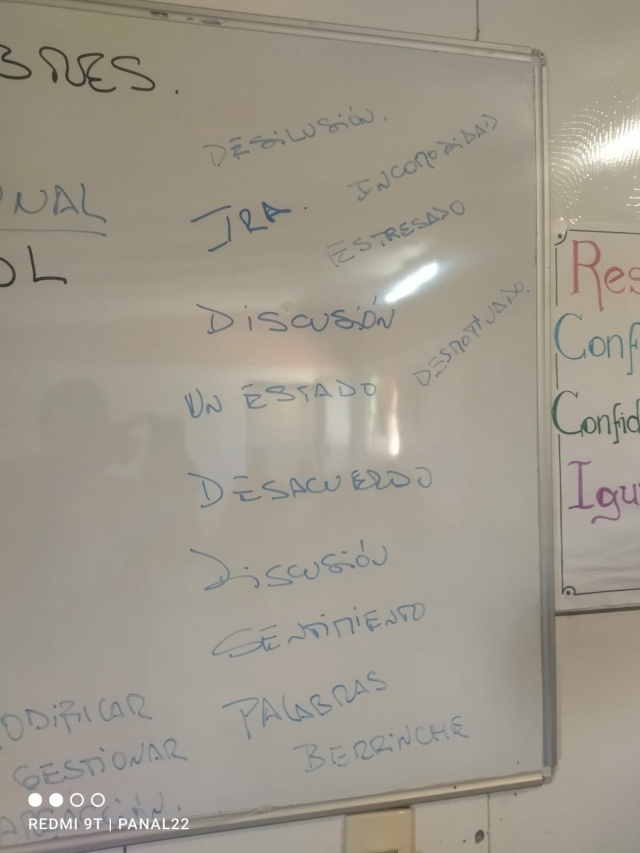 BRES.
DESILUSIÓN.
INCOMODIDAD
NAL
IRA.
ESTRESADO
OL
DISCUSIÓN
DESMOTIVADO.
UN ESTADO
DESACUERDO
DISCUSIÓN
SENTIMIENTO
ODIFICAR
PALABRAS
GESTIONAR
BERRINCHE
Res
Conf
Confid
Igu
REDMI 9T | PANAL22